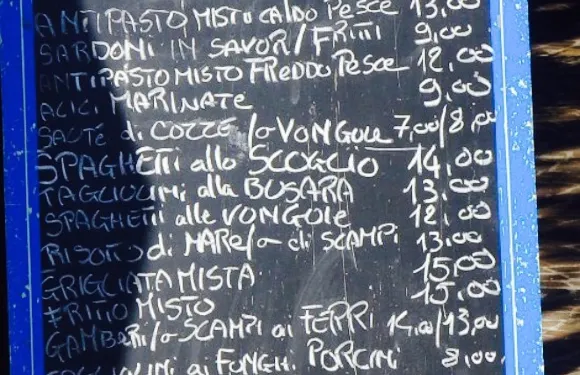 ANTIPASTO MISTO CALDO PESCE 13,00
SARDONI IN SAVOR/FRITTI 9,00
ANTIPASTO MISTO FREDDO PESCE 12,00
ALICI MARINATE 9,00
SAUTÉ di COZZE/o VONGOLE 7,00/8,00
SPAGHETTI allo SCOGLIO 14,00
TAGLIOLINI alla BUSARA 13,00
SPAGHETTI alle VONGOLE 12,00
RISOTTO di MARE/o di SCAMPI 13,00
GRIGLIATA MISTA 15,00
FRITTO MISTO 15,00
GAMBERI/o SCAMPI ai FERRI 14,00/13,00
TAGLIOLINI ai FUNGHI PORCINI 8,00